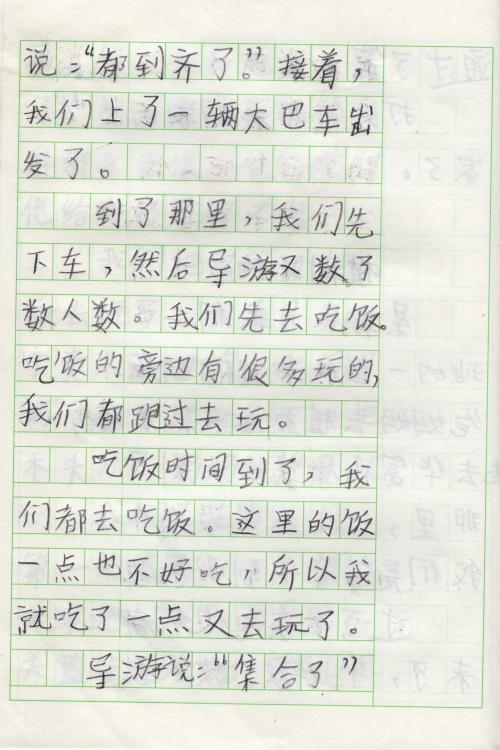 说：“都到齐了”。接着，
我们上了一辆大巴车出
发了。
到了那里，我们先
下车，然后导游又数了
数人数。我们先去吃饭。
吃饭的旁边有很多玩的，
我们都跑过去玩。
吃饭时间到了，我
们都去吃饭。这里的饭
一点也不好吃，所以我
就吃了一点又去玩了。
导游说：“集合了”